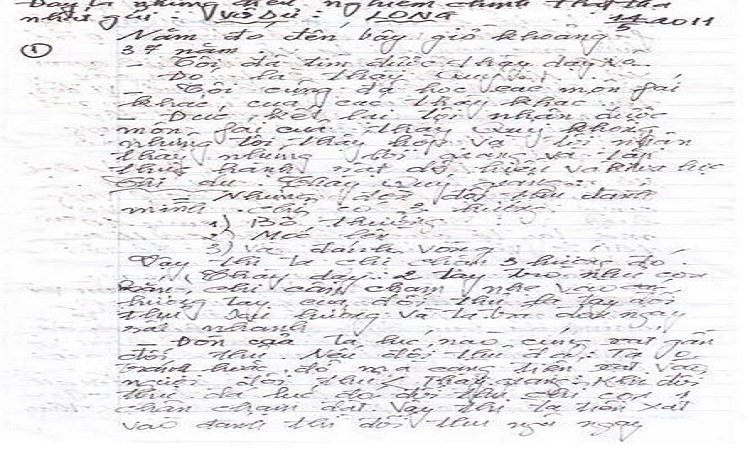 Đây là những điều nghiêm chỉnh thật thà
như gửi: Võ Sư: LONG 14/5 2011
① Năm đó đến bây giờ khoảng
37 năm.
- Tôi đã tìm được thầy dạy võ
Đó là thầy Quý
- Tôi cũng đã học các môn phái
khác của các thầy khác
- Đúc kết lại tôi nhận được
môn phái của thầy Quý không
những tôi thấy hợp và tôi nhận
thấy những lời giảng và tập
thực hành rất dễ hiểu và khoa học
Thí dụ: Thầy Quý giảng:
- Những đối thủ đánh
mình 3 hướng
1) Bổ thượng
2) Móc lên
3) Và đánh vòng
Vậy thì ta chỉ chặn 3 hướng đó.
Thầy dạy: 2 tay trỏ như con
rắn, chỉ cần chạm nhẹ vào
hướng tay của đối thủ là tay đối
thủ hướng và ta trả đòn ngay
rất nhanh
- Đòn của ta lúc nào cũng rất gần
đối thủ. Nếu đối thủ đá: Ta 0
tránh hoặc đỡ mà càng tiến sát vào
người đối thủ. Thầy giảng: Khi đối
thủ đá lúc đó đối thủ chỉ còn 1
chân chạm đất. Vậy thì ta tiến sát
vào đánh thì đối thủ ngã ngay